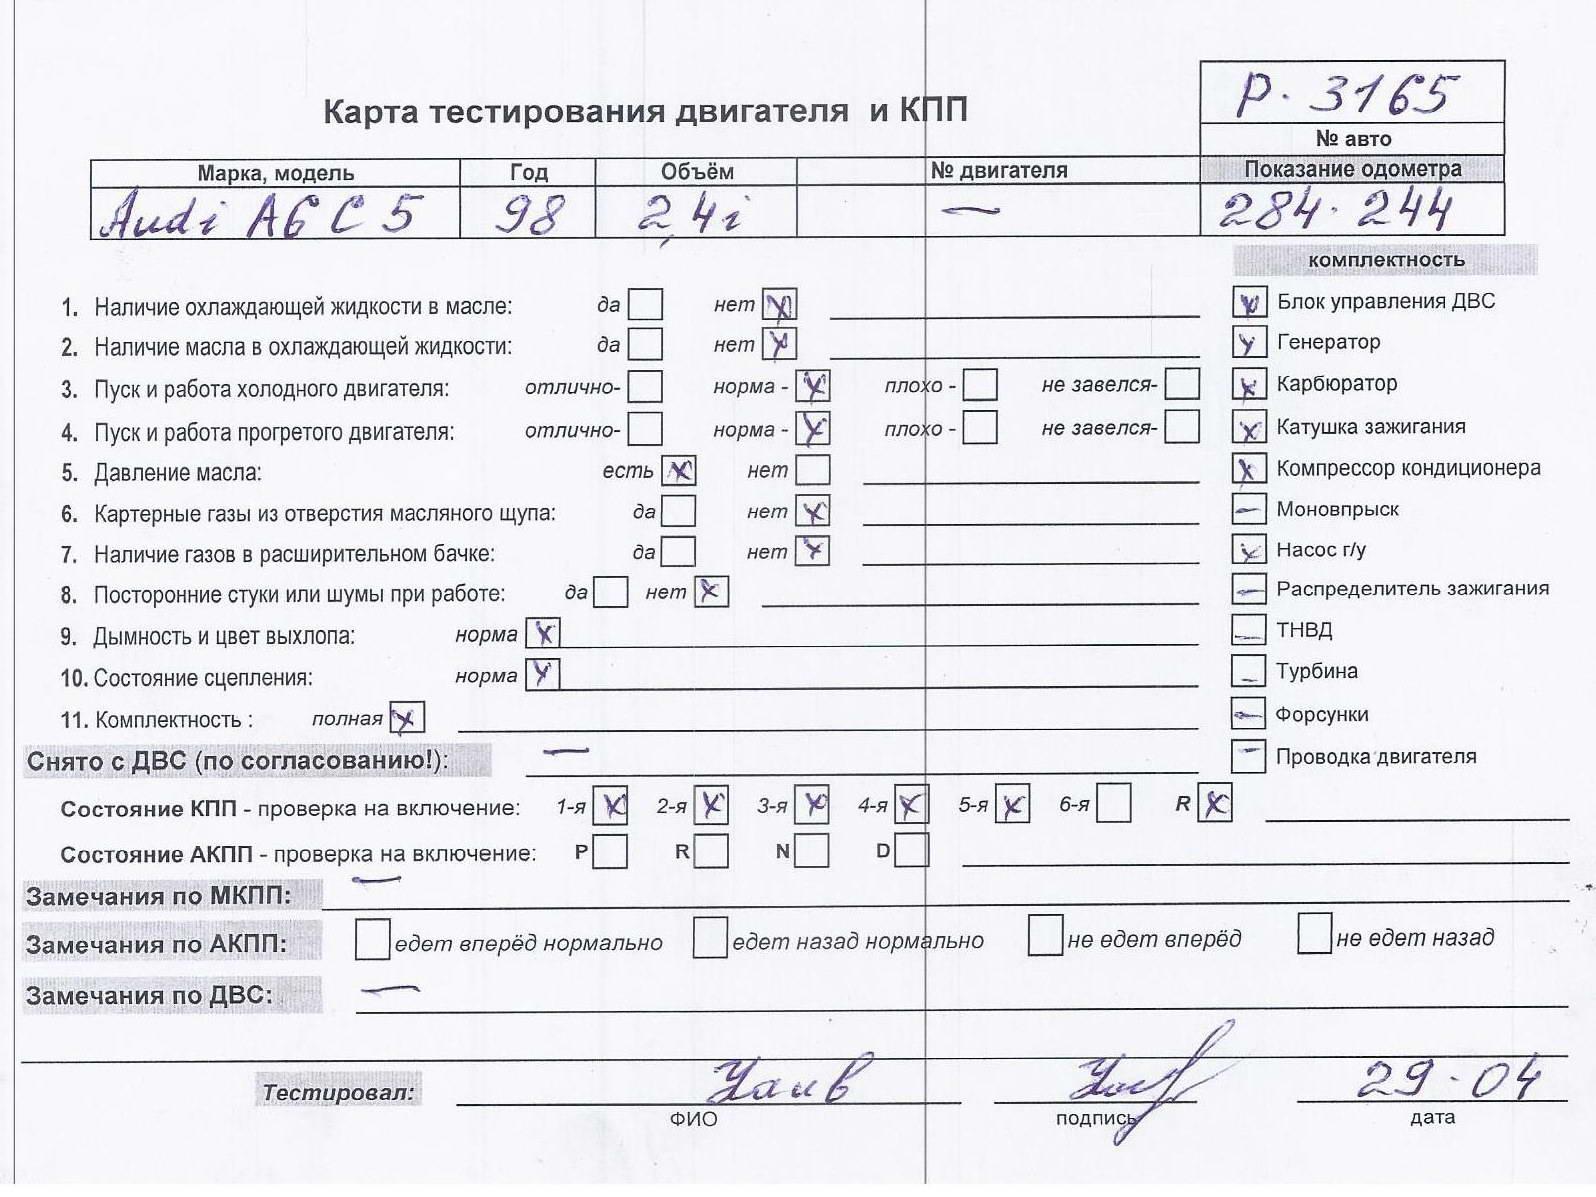 Р. 3165
Карта тестирования двигателя и КПП
№ авто
Марка, модель Год Объём № двигателя Показание одометра
Audi A6 C5 98 2,4i — 284.244
комплектность
1. Наличие охлаждающей жидкости в масле: да нет
Блок управления ДВС
2. Наличие масла в охлаждающей жидкости: да нет
Генератор
3. Пуск и работа холодного двигателя: отлично- норма - плохо - не завелся-
Карбюратор
4. Пуск и работа прогретого двигателя: отлично- норма - плохо - не завелся-
Катушка зажигания
5. Давление масла: есть нет
Компрессор кондиционера
6. Картерные газы из отверстия масляного щупа: да нет
Моновпрыск
7. Наличие газов в расширительном бачке: да нет
Насос г/у
8. Посторонние стуки или шумы при работе: да нет
Распределитель зажигания
9. Дымность и цвет выхлопа: норма
ТНВД
10. Состояние сцепления: норма
Турбина
11. Комплектность : полная
Форсунки
Снято с ДВС (по согласованию!): —
Проводка двигателя
Состояние КПП - проверка на включение: 1-я 2-я 3-я 4-я 5-я 6-я R
Состояние АКПП - проверка на включение: P R N D
Замечания по МКПП: —
Замечания по АКПП: едет вперёд нормально едет назад нормально не едет вперёд не едет назад
Замечания по ДВС: —
Тестировал: 29-04
ФИО подпись дата